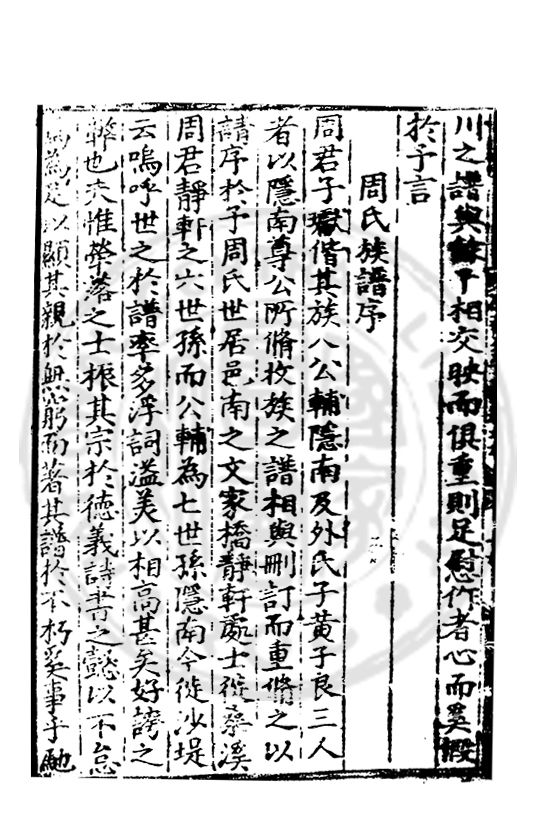 川之譜與蘇平相交映而俱重則足慰作者心而奚假
於予言
周氏族譜序
周君子嶽偕其族八公輔隱南及外氏子黃子良三人
者以隱南尊公所脩枚族之譜相與刪訂而重脩之以
請序於予周氏世居邑南之文家橋靜軒處士從蔡溪
周君靜軒之六世孫而公輔為七世孫隱南今徙沙堤
云嗚呼世之於譜率多浮詞溢美以相高甚矣好誇之
弊也夫惟犖落之士振其宗於德義詩書之懿以不怠
為足以顯其親於無窮而著其譜於不朽奚事乎馳